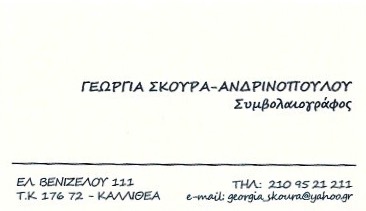 ΓΕΩΡΓΙΑ ΣΚΟΥΡΑ-ΑΝΔΡΙΝΟΠΟΥΛΟΥ
Συμβολαιογράφος
ΕΛ. ΒΕΝΙΖΕΛΟΥ 111
Τ.Κ. 176 72 - ΚΑΛΛΙΘΕΑ
ΤΗΛ: 210 95 21 211
e-mail: georgia_skoura@yahoo.gr